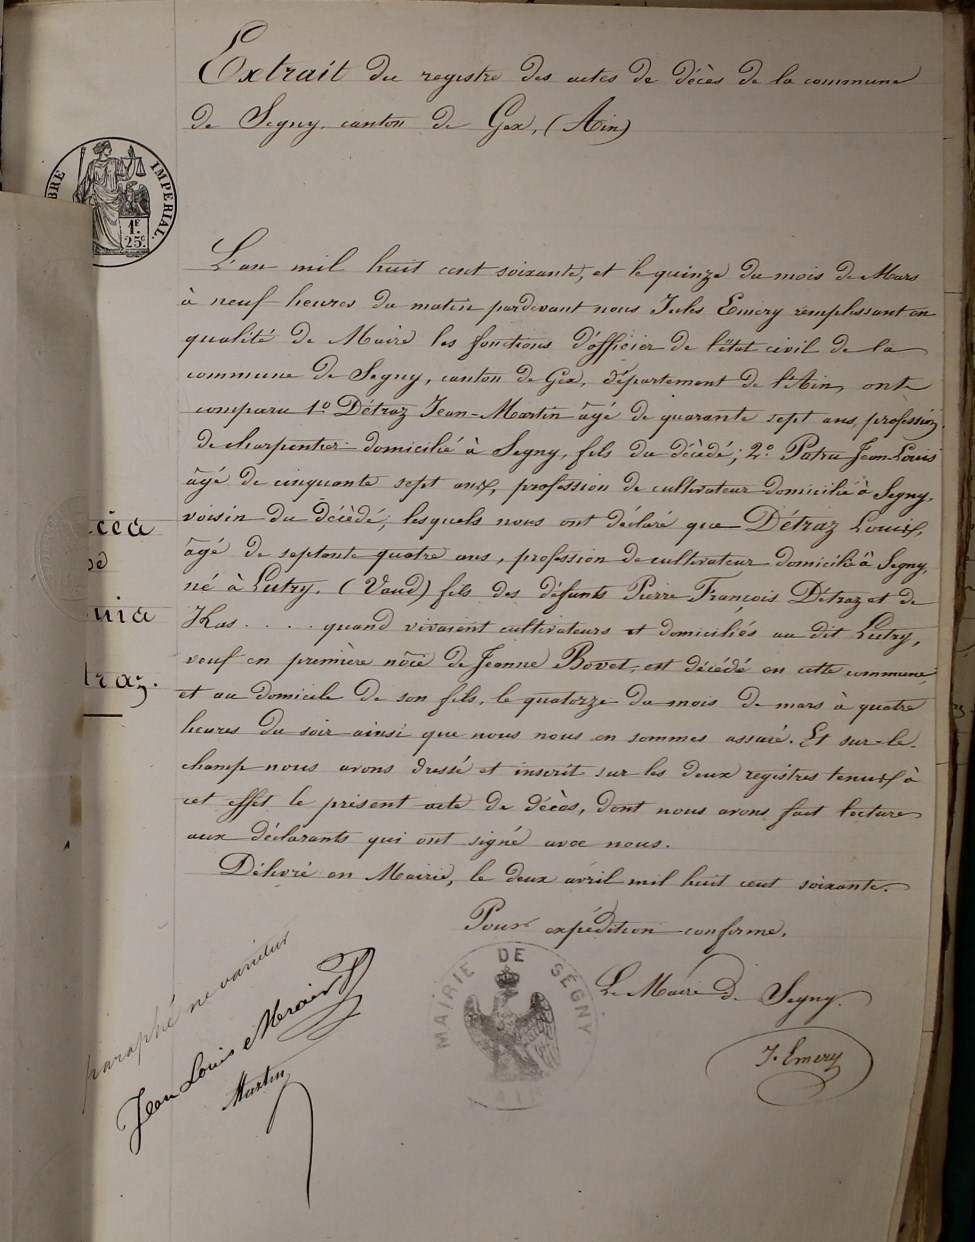 Extrait du registre des actes de décès de la commune
de Segny, canton de Gex, (Ain)
BRE IMPERIAL.
1F.
25c.
L'an mil huit cent soixante, et le quinze du mois de Mars
à neuf heures du matin pardevant nous Jules Emery remplissant en
qualité de Maire les fonctions d'officier de l'état civil de la
commune de Segny, canton de Gex, département de l'Ain, ont
comparu 1º Détraz Jean-Martin âgé de quarante sept ans, profession
de charpentier domicilié à Segny, fils du décédé; 2º Patru Jean-Louis
âgé de cinquante sept ans, profession de cultivateur domicilié à Segny,
voisin du décédé, lesquels nous ont déclaré que Détraz Louis,
âgé de septante quatre ans, profession de cultivateur domicilié à Segny,
né à Lutry, (Vaud) fils des défunts Pierre François Détraz et de
Kas . . . . quand vivaient cultivateurs et domiciliés au dit Lutry,
veuf en première noce de Jeanne Bovet, est décédé en cette commune,
et au domicile de son fils, le quatorze du mois de mars à quatre
heures du soir ainsi que nous nous en sommes assuré. Et sur-le-
champ nous avons dressé et inscrit sur les deux registres tenus à
cet effet le présent acte de décès, dont nous avons fait lecture
aux déclarants qui ont signé avec nous.
Délivré en Mairie, le deux avril mil huit cent soixante.
Pour expédition conforme,
Le Maire de Segny.
J. Emery
MAIRIE DE SÉGNY
AIN
paraphé ne varietur
Jean Louis
Martin